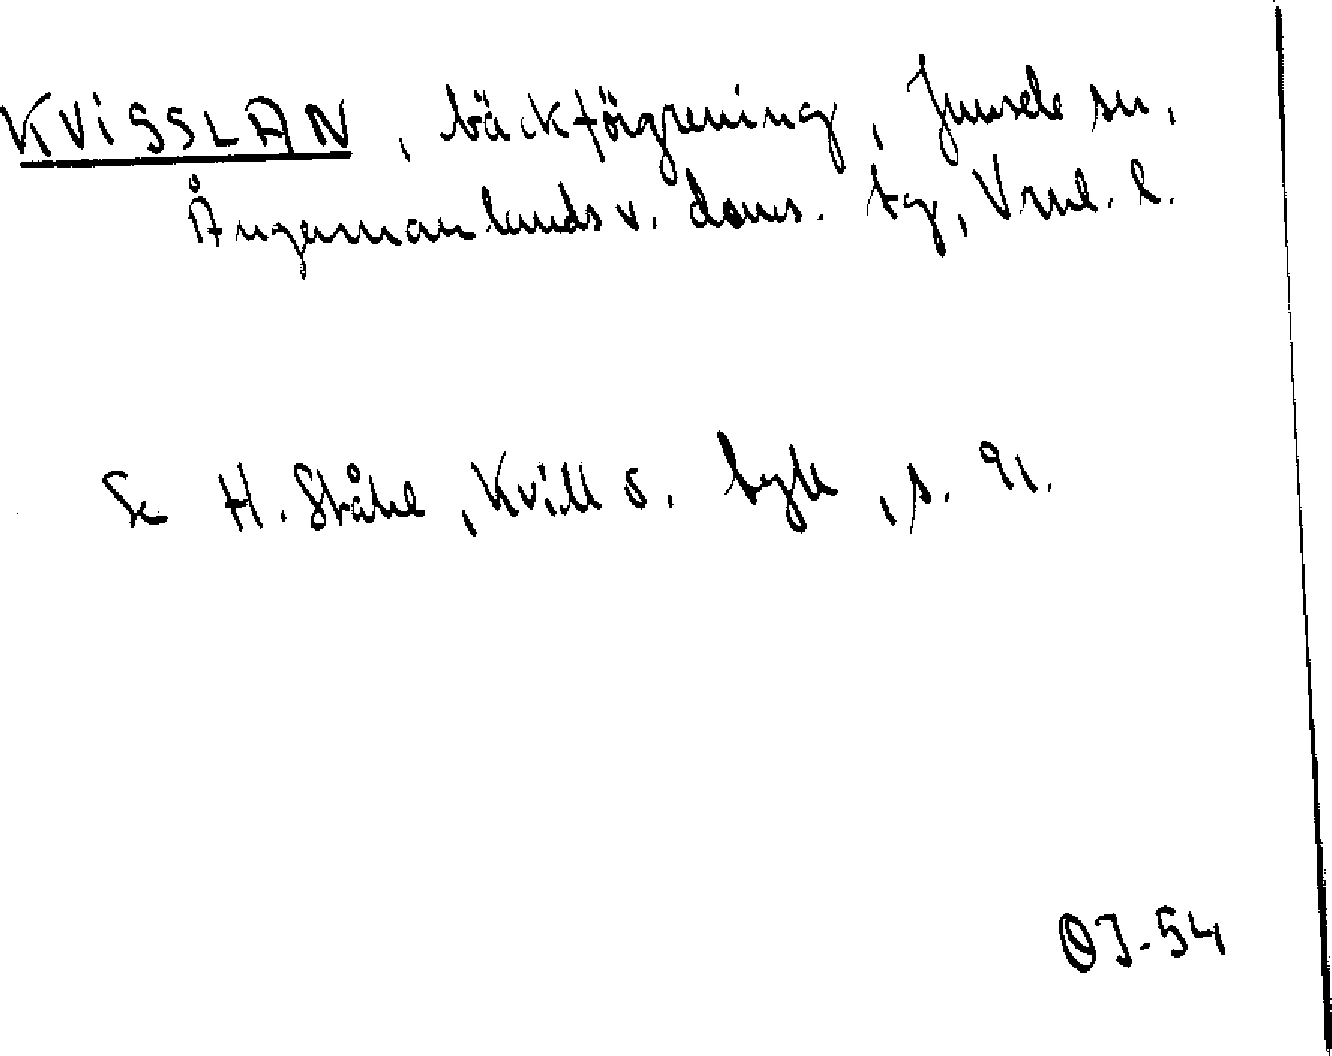 KVISSLAN, bäckförgrening, Junsele sn,
Ångermanlands v. doms. tg, Vrnl. l.
Se H. Ståhl, Kvill o. tyll, s. 91.
OJ-54